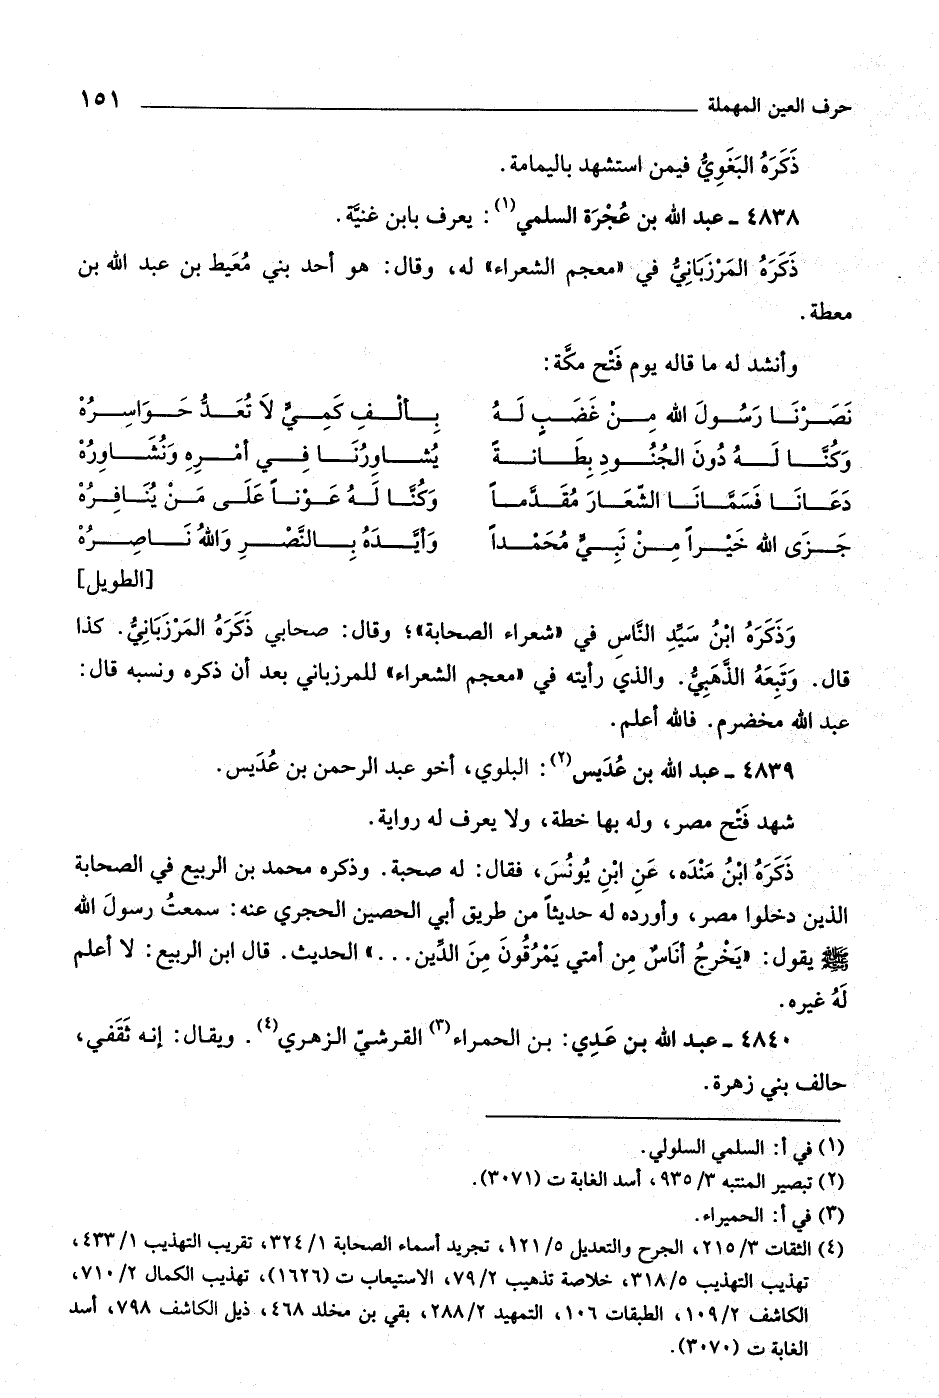 حرف العين المهملة ١٥١
ذَكَرَهُ البَغَوِيُّ فيمن استشهد باليمامة.
٤٨٣٨ ـ عبد الله بن عُجْرَة السلمي(١): يعرف بابن غنيَّة.
ذَكَرَهُ المَرْزَبَانِيُّ في «معجم الشعراء» له، وقال: هو أحد بني مُعَيط بن عبد الله بن
معطة.
وأنشد له ما قاله يوم فَتْح مكَّة:
نَصَرْنَا رَسُولَ الله مِنْ غَضَبٍ لَهُ بِأَلْفِ كَمِيٍّ لاَ تُعَدُّ حَوَاسِرُهْ
وَكُنَّا لَهُ دُونَ الجُنُودِ بِطَانَةً يُشَاوِرُنَا فِي أَمْرِهِ وَنُشَاوِرُهْ
دَعَانَا فَسَمَّانَا الشِّعَارَ مُقَدَّماً وَكُنَّا لَهُ عَوْناً عَلَى مَنْ يُنَافِرُهْ
جَزَى الله خَيْراً مِنْ نَبِيٍّ مُحَمْداً وَأَيَّدَهُ بِالنَّصْرِ وَاللهُ نَاصِرُهْ
[الطويل]
وَذَكَرَهُ ابْنُ سَيِّدِ النَّاسِ في «شعراء الصحابة»؛ وقال: صحابي ذَكَرَهُ المَرْزَبَانِيُّ. كذا
قال. وَتَبِعَهُ الذَّهَبِيُّ. والذي رأيته في «معجم الشعراء» للمرزباني بعد أن ذكره ونسبه قال:
عبد الله مخضرم. فالله أعلم.
٤٨٣٩ ـ عبد الله بن عُدَيس(٢): البلوي، أخو عبد الرحمن بن عُدَيس.
شهد فَتْح مصر، وله بها خطة، ولا يعرف له رواية.
ذَكَرَهُ ابْنُ مَنْدَه، عَنِ ابْنِ يُونُسَ، فقال: له صحبة. وذكره محمد بن الربيع في الصحابة
الذين دخلوا مصر، وأورده له حديثاً من طريق أبي الحصين الحجري عنه: سمعتُ رسولَ الله
ﷺ يقول: «يَخْرجُ أُنَاسٌ مِن أمتي يَمْرُقُونَ مِنَ الدِّين...» الحديث. قال ابن الربيع: لا أعلم
لَهُ غيره.
٤٨٤٠ ـ عبد الله بن عَدِي: بن الحمراء(٣) القرشيّ الزهري(٤). ويقال: إنه ثَقَفي،
حالف بني زهرة.
(١) في أ: السلمي السلولي.
(٢) تبصير المنتبه ٣/ ٩٣٥، أسد الغابة ت (٣٠٧١).
(٣) في أ: الحميراء.
(٤) الثقات ٣/ ٢١٥، الجرح والتعديل ٥/ ١٢١، تجريد أسماء الصحابة ١/ ٣٢٤، تقريب التهذيب ١/ ٤٣٣،
تهذيب التهذيب ٥/ ٣١٨، خلاصة تذهيب ٢/ ٧٩، الاستيعاب ت (١٦٢٦)، تهذيب الكمال ٢/ ٧١٠،
الكاشف ٢/ ١٠٩، الطبقات ١٠٦، التمهيد ٢/ ٢٨٨، بقي بن مخلد ٤٦٨، ذيل الكاشف ٧٩٨، أسد
الغابة ت (٣٠٧٠).